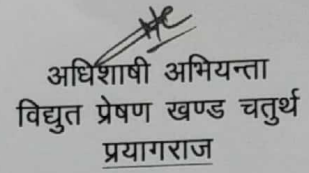 अधिशाषी अभियन्ता
विद्युत प्रेषण खण्ड चतुर्थ
प्रयागराज